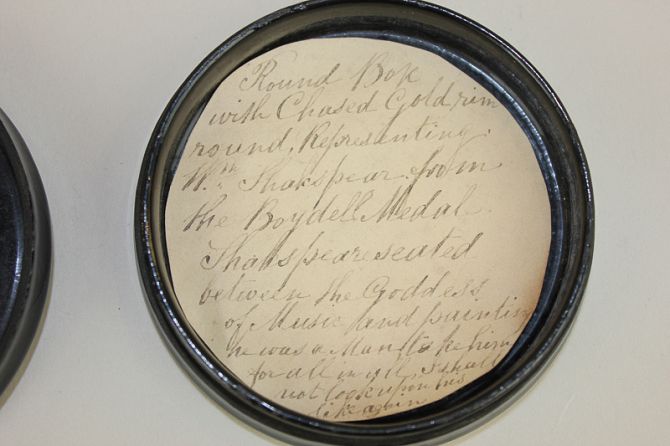 Round Box
with Chased Gold rim
round, Representing
Wm. Shakspear from
the Boydell Medal
Shakspeare seated
between the Goddess
of Music and painting
he was a Man take him
for all in all, I shall
not look upon his
like again